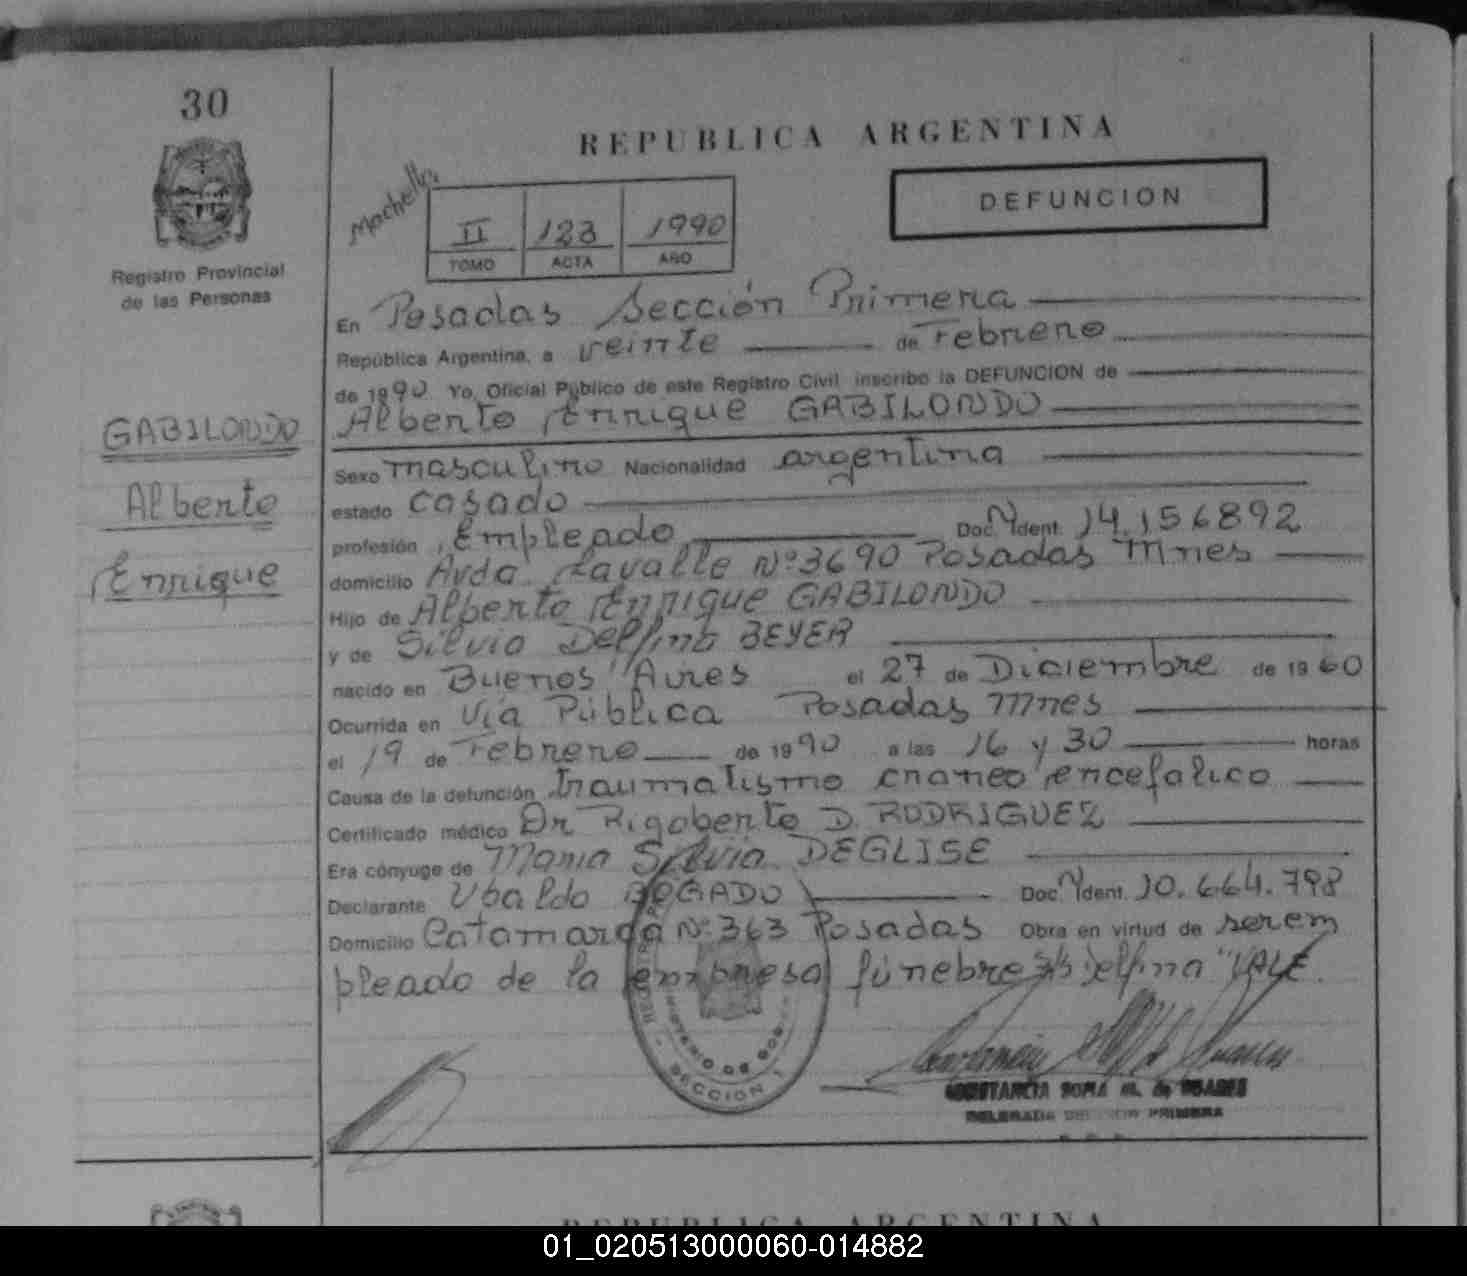 30
REPUBLICA ARGENTINA
Registro Provincial
de las Personas
II 123 1990
TOMO ACTA AÑO
DEFUNCION
En Posadas Sección Primera
República Argentina, a veinte de Febrero
de 1990 Yo, Oficial Público de este Registro Civil inscribo la DEFUNCION de
Alberto Enrique GABILONDO
GABILONDO
Alberto
Enrique
Sexo masculino Nacionalidad argentina
estado casado
profesión Empleado Doc. Ident. 14.156892
domicilio Avda Lavalle Nº3690 Posadas Mnes
Hijo de Alberto Enrique GABILONDO
y de Silvia Delfina BEYER
nacido en Buenos Aires el 27 de Diciembre de 1960
Ocurrida en Vía Pública Posadas Mnes
el 19 de Febrero de 1990 a las 16 y 30 horas
Causa de la defunción traumatismo craneo encefalico
Certificado médico Dr Rigoberto D. RODRIGUEZ
Era cónyuge de Maria Silvia DEGLISE
Declarante Ubaldo BOGADO Doc. Ident. 10.664.798
Domicilio Catamarca Nº 363 Posadas Obra en virtud de ser em
pleado de la empresa fúnebre
SECCION 1
REPUBLICA ARGENTINA
01_020513000060-014882